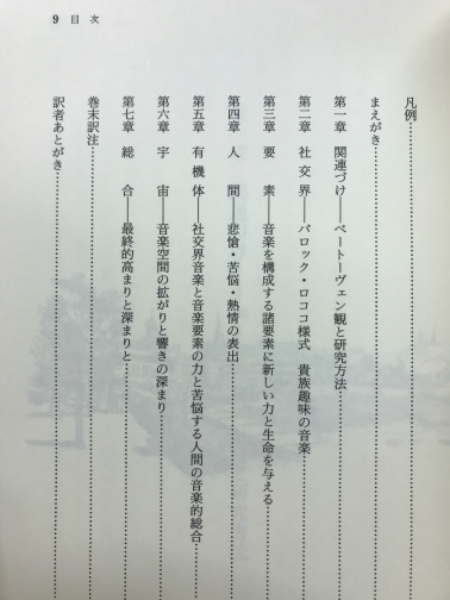 9 目次
凡例
まえがき
第一章 関連づけ――ベートーヴェン観と研究方法
第二章 社交界――バロック・ロココ様式 貴族趣味の音楽
第三章 要素――音楽を構成する諸要素に新しい力と生命を与える
第四章 人間――悲愴・苦悩・熱情の表出
第五章 有機体――社交界音楽と音楽要素の力と苦悩する人間の音楽的総合
第六章 宇宙――音楽空間の拡がりと響きの深まり
第七章 総合――最終的高まりと深まりと
巻末訳注
訳者あとがき